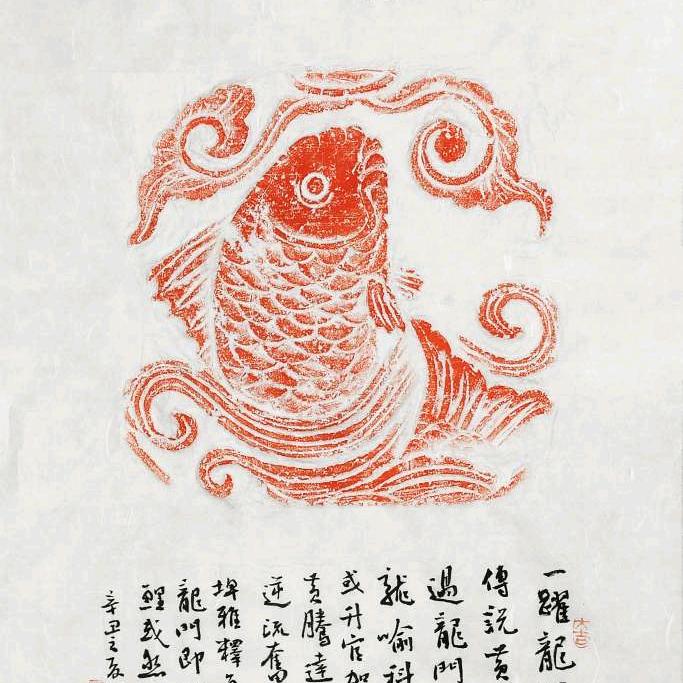 一躍龍
大吉
傳説黄
過龍門
龍喻科
或升官加
黄騰達
逆流奮
埤雅釋
龍門即
鯉或然
辛丑之夏